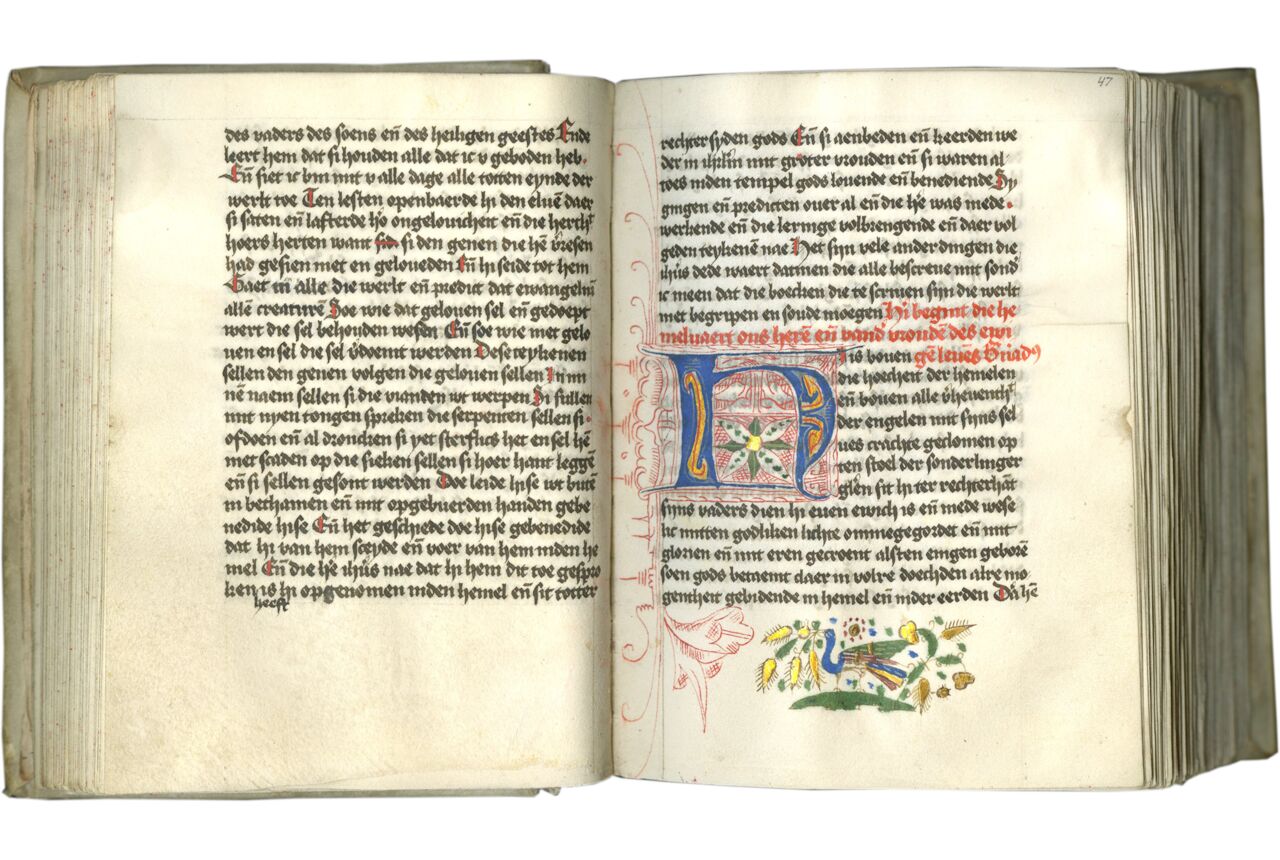 des vaders des soens en̄ des heiligen geestes Ende
leert hem dat si houden alle dat ic v geboden heb.
En̄ siet ic bin mit v alle dage alle totten eynde der
werlt toe Ten lesten openbaerde hi den eluē daer
si saten en̄ lasterde hoer ongelouicheit en̄ die herth
hoers herten want si den genen die hē vresen
had gesien niet en geloueden En̄ hi seide tot hem
Gaet in alle die werlt en̄ predict dat ewangeliū
allē creaturē Soe wie dat gelouen sel en̄ gedoept
wert die sel behouden wesen En̄ soe wie niet gelo
uen en sel die sel vdoemt werden Dese teykenen
sellen den genen volgen die gelouen sellen In mi
nē naem sellen si die vianden wt werpen Si sullen
mit nyen tongen spreken die serpenten sellen si
ofdoen en̄ al droncken si yet sterflics het en sel hē
niet scaden op die sieken sellen si hoer hant leggē
en̄ si sellen gesont werden Doe leide hise wt butē
in bethanien en̄ mit opgebuerden handen gebe
nedide hise En̄ het geschiede doe hise gebenedide
dat hi van hem sceyde en̄ voer van hem inden he
mel En̄ die hē ihūs nae dat hi hem dit toe gespro
ken is hi opgenomen inden hemel en̄ sit totter
heeft
47
rechter syden gods En̄ si aenbeden en̄ keerden we
der in ihrlm̄ mit groter vrouden en̄ si waren al
toes inden tempel gods louende en̄ benediende Sy
gingen en̄ predicten ouer al en̄ die hē was mede
werkende en̄ die leringe volbrengende en̄ daer vol
geden teykenē nae Het sijn vele ander dingen die
ihūs dede waert datmen die alle bescreue mit sond'
ic meen dat die boecken die te scriuen sijn die werlt
niet begripen en soude moegen Hi begint die he
meluaert ons herē en̄ vand' vroudē des ewi
is bouen gē leues
die hoecheit der hemelen
en̄ bouen alle
der engelen mit sijns sel
ues crachte geclomen op
ten stoel der sonderlinger
glen sit hi ter rechterhāt
sijns vaders dien hi euen ewich is en̄ mede wese
lic mitten godliken lichte ommegegordet en̄ mit
glorien en̄ mit eren gecroent alsten enigen geborē
soen gods betaemt daer in volre doechden alre mo
gentheit gebidende in hemel en̄ inder eerden Dā hē